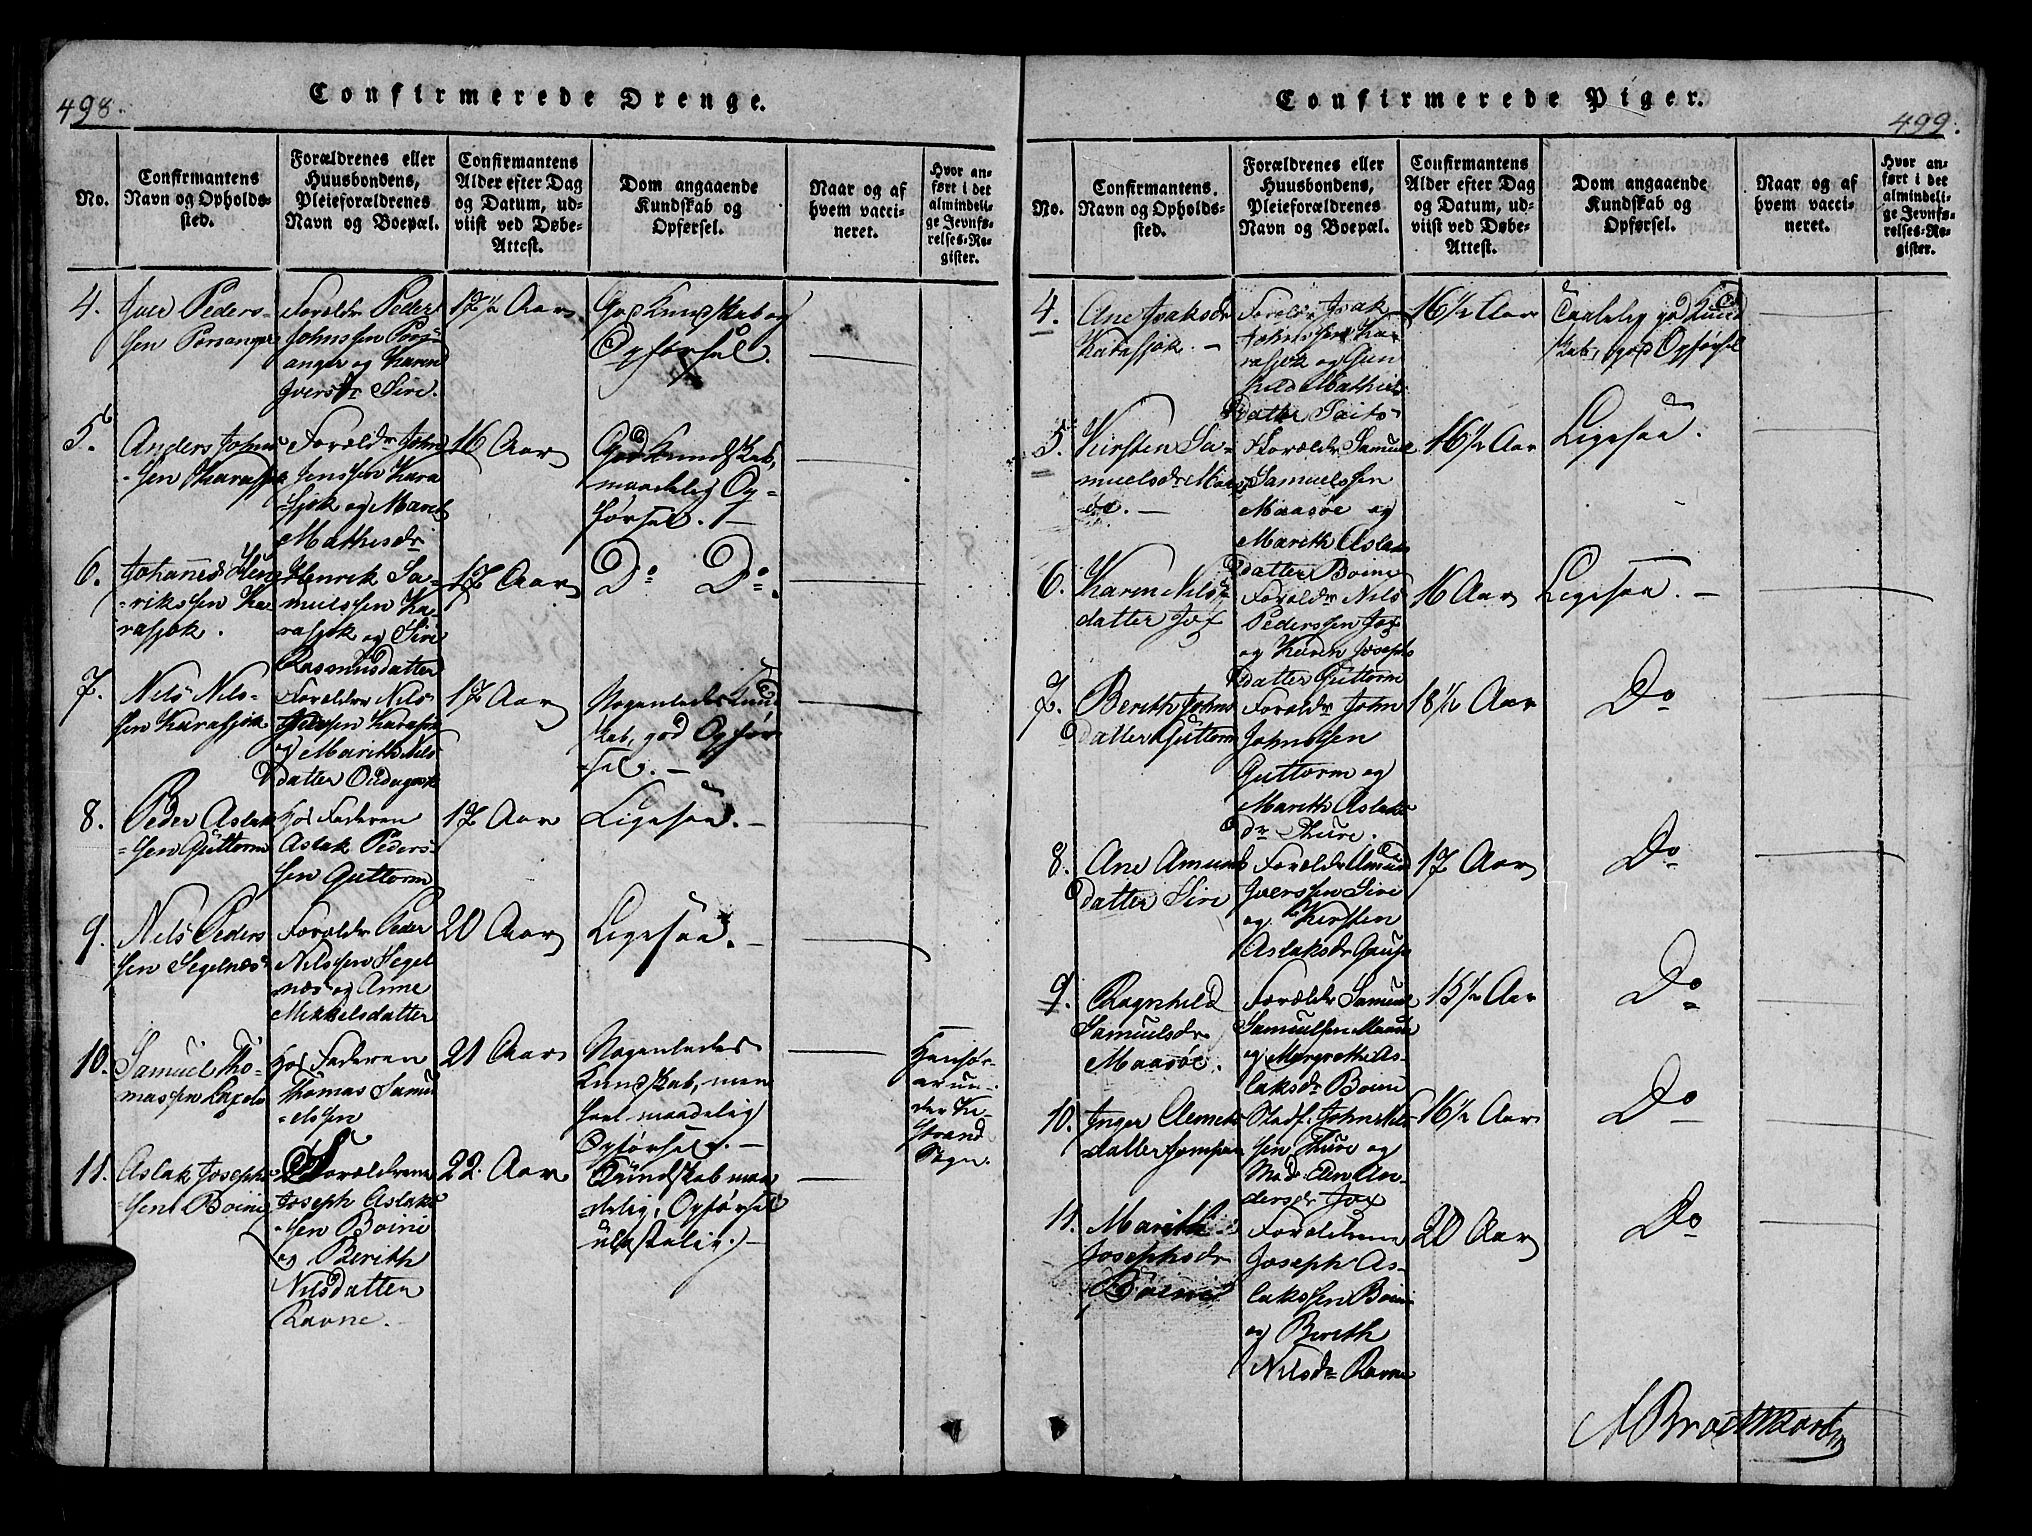 498.
Confirmerede Drenge.
No.
Confirmantens
Navn og Opholds-
sted.
Forældrenes eller
Huusbondens,
Pleieforældrenes
Navn og Boepæl.
Confirmantens
Alder efter Dag
og Datum, ud-
viist ved Døbe-
Attest.
Dom angaaende
Kundskab og
Opførsel.
Naar og af
hvem vacci-
neret.
Hvor an-
ført i det
almindeli-
ge Jevnfø-
relses-Re-
gister.
4.
Iver Peders-
sen Porsanger
Forældr Peder
Johnssen Pors-
anger og Karen
Iversdr Siri.
17½ Aar.
God Kundskab og
Opførsel.
5.
Anders Johns
-sen Karasjok
Forældr John
Jenssen Kara
-sjok og Mareth
Mathisdr
16 Aar
God Kundskab,
maadelig Op-
førsel. -
6.
Johannes Hen
-rikssen Ka
rasjok.
Henrik Sa-
muelssen Ka-
rasjok og Siri
Rasmusdatter
17 Aar
Do Do.
7.
Nils Nils-
sen Karasjok
Forældre Nils
Karasjok
og Marith Nils
datter
17 Aar
Nogenledes Kund
skab, god Opfør
-sel. -
8.
Peder Aslak
-sen Guttorm
Hos Faderen
Aslak Peders-
sen Guttorm
17 Aar
Ligesaa. -
9.
Nils Peders
sen Segelnæs
Forældr Peder
Nilssen Segel
næs og Anne
Mikkelsdatter
20 Aar
Ligesaa. -
10.
Samuel Tho-
massen
Hos Faderen
Thomas Samu
-elssen
21 Aar
Nogenledes
Kundskab, men
maadelig
Opførsel. -
Henhør-
er un-
der Ki-
strand
Sogn.
11.
Aslak Joseph
sen Boini
Forældrene
Joseph Aslak
-sen Boini
og Berith
Nilsdatter
Ravne.
22 Aar
Kundskab maa
delig, Opførsel
-
499.
Confirmerede Piger.
No.
Confirmantens
Navn og Opholds-
sted.
Forældrenes eller
Huusbondens,
Pleieforældrenes
Navn og Boepæl.
Confirmantens
Alder efter Dag
og Datum, ud-
viist ved Døbe-
Attest.
Dom angaaende
Kundskab og
Opførsel.
Naar og af
hvem vacci-
neret.
Hvor an-
ført i det
almindeli-
ge Jevnfø-
relses-Re-
gister.
4.
Ane Isaksdr
Karasjok. -
Forældr Isak
Johnssen Ka-
rasjok og Gun
hild Mathis
datter
16½ Aar
Taalelig god Kund
skab, og god Opførsel
5.
Kirsten Sa-
muelsdr Maas
øe. -
Forældr Samuel
Samuelssen
Maasøe og
Marith Aslaks
datter Boine
16½ Aar
Ligesaa.
6.
Karen Nils
datter Jox
Forældr Nils
Pederssen Jox
og Karen Josephs
datter Guttorm
16 Aar
Ligesaa. -
7.
Berith Johns
datter Guttorm
Forældr John
Johnssen
Guttorm og
Marith Aslaks
dr Thure.
18½ Aar
Do
8.
Ane Amunds
datter Siri
Forældr Amund
Iverssen Siri
og Kirsten
Aslaksdr
17 Aar
Do
9.
Ragnhild
Samuelsdr
Maasøe.
Forældr Samuel
Samuelsen Maasøe
og Margrethe As-
laksdr Boini
15½ Aar
Do
10.
Inger Clemets
datter
Stedf. John Nils
sen Thure og
Mod. Elen An-
dersdr Jox
16½ Aar
Do
11.
Marith
Josephsdr
Boine
Forældrene
Joseph As-
lakssen Boini
og Berith
Nilsdr Ravne
20 Aar
Do